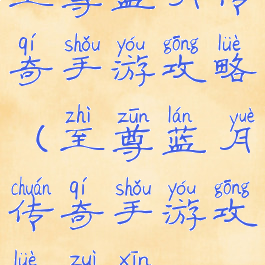 qí shǒu yóu gōng lüè
奇手游攻略
zhì zūn lán yuè
（至尊蓝月
chuán qí shǒu yóu gōng
传奇手游攻
lüè zuì xīn